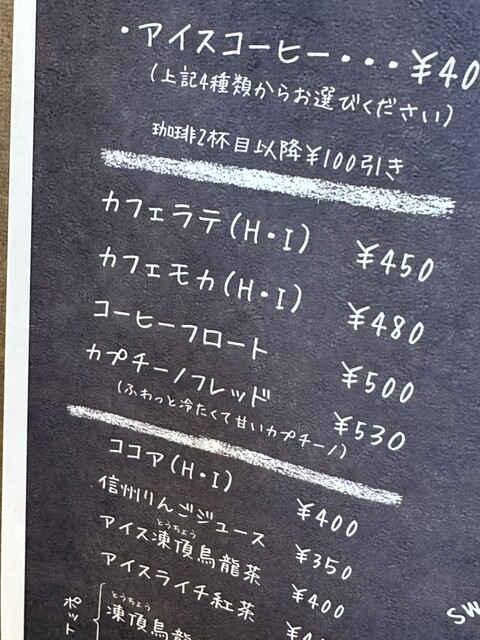 ・アイスコーヒー・・・¥40
(上記4種類からお選びください)
珈琲2杯目以降¥100引き
カフェラテ(H・I) ¥450
カフェモカ(H・I) ¥480
コーヒーフロート ¥500
カプチーノフレッド ¥530
(ふわっと冷たくて甘いカプチーノ)
ココア(H・I) ¥400
信州りんごジュース ¥350
とうちょう
アイス凍頂烏龍茶 ¥400
アイスライチ紅茶
とうちょう
ポット
凍頂烏龍
SW